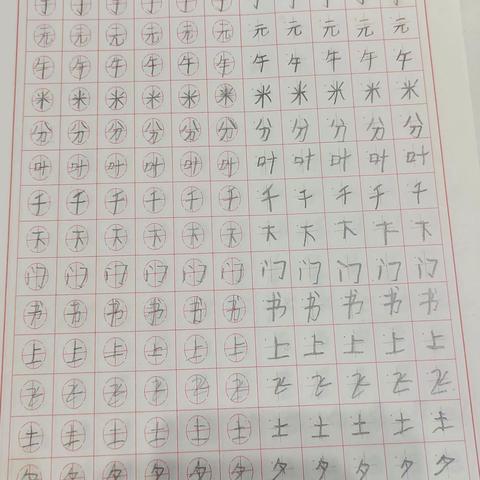 元 元 元 元 元 元 元 元 元 元 元
午 午 午 午 午 午 午 午 午 午 午
米 米 米 米 米 米 米 米 米 米 米
分 分 分 分 分 分 分 分 分 分 分
叶 叶 叶 叶 叶 叶 叶 叶 叶 叶 叶
千 千 千 千 千 千 千 千 千 千 千
门 门 门 门 门 门 门 门 门 门 门
书 书 书 书 书 书 书 书 书 书 书
上 上 上 上 上 上 上 上 上 上 上
飞 飞 飞 飞 飞 飞 飞 飞 飞 飞 飞
土 土 土 土 土 土 土 土 土 土 土
夕 夕 夕 夕 夕 夕 夕 夕 夕 夕 夕